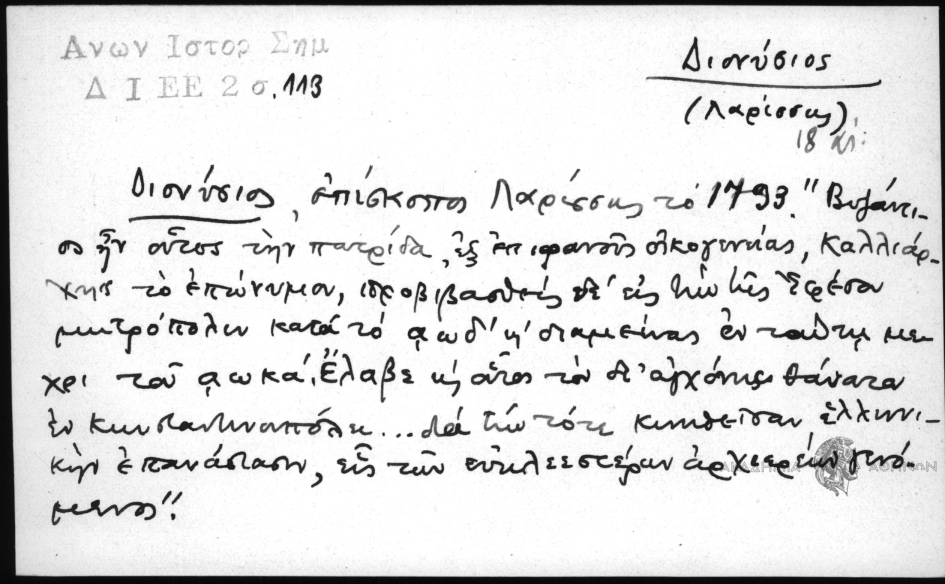 Ανων Ιστορ Σημ
Δ Ι ΕΕ 2 σ. 113
Διονύσιος
(Λαρίσσης)
18 αἰ:
Διονύσιος, ἐπίσκοπος Λαρίσσης τὸ 1793. "Βυζάντι-
ος ἦν οὗτος τὴν πατρίδα, ἐξ ἐπιφανοῦς οἰκογενείας, Καλλιάρ-
χης τὸ ἐπώνυμον, προβιβασθείς δέ εἰς τὴν τῆς Ἐφέσου
μητρόπολιν κατά τό αωδ' κ' διαμείνας ἐν ταύτῃ με-
χρι τοῦ αωκά. Ἔλαβε κ' οὗτος τὸν δι' ἀγχόνης θάνατα
ἐν Κωνσταντινουπόλει... διά τὴν τότε κινηθεῖσαν ἑλληνι-
κὴν ἐπανάστασιν, εἷς τῶν εὐκλεεστέρων ἀρχιερέων γενό-
μενος".
ΑΚΑΔΗΜΙΑ ΑΘΗΝΩΝ